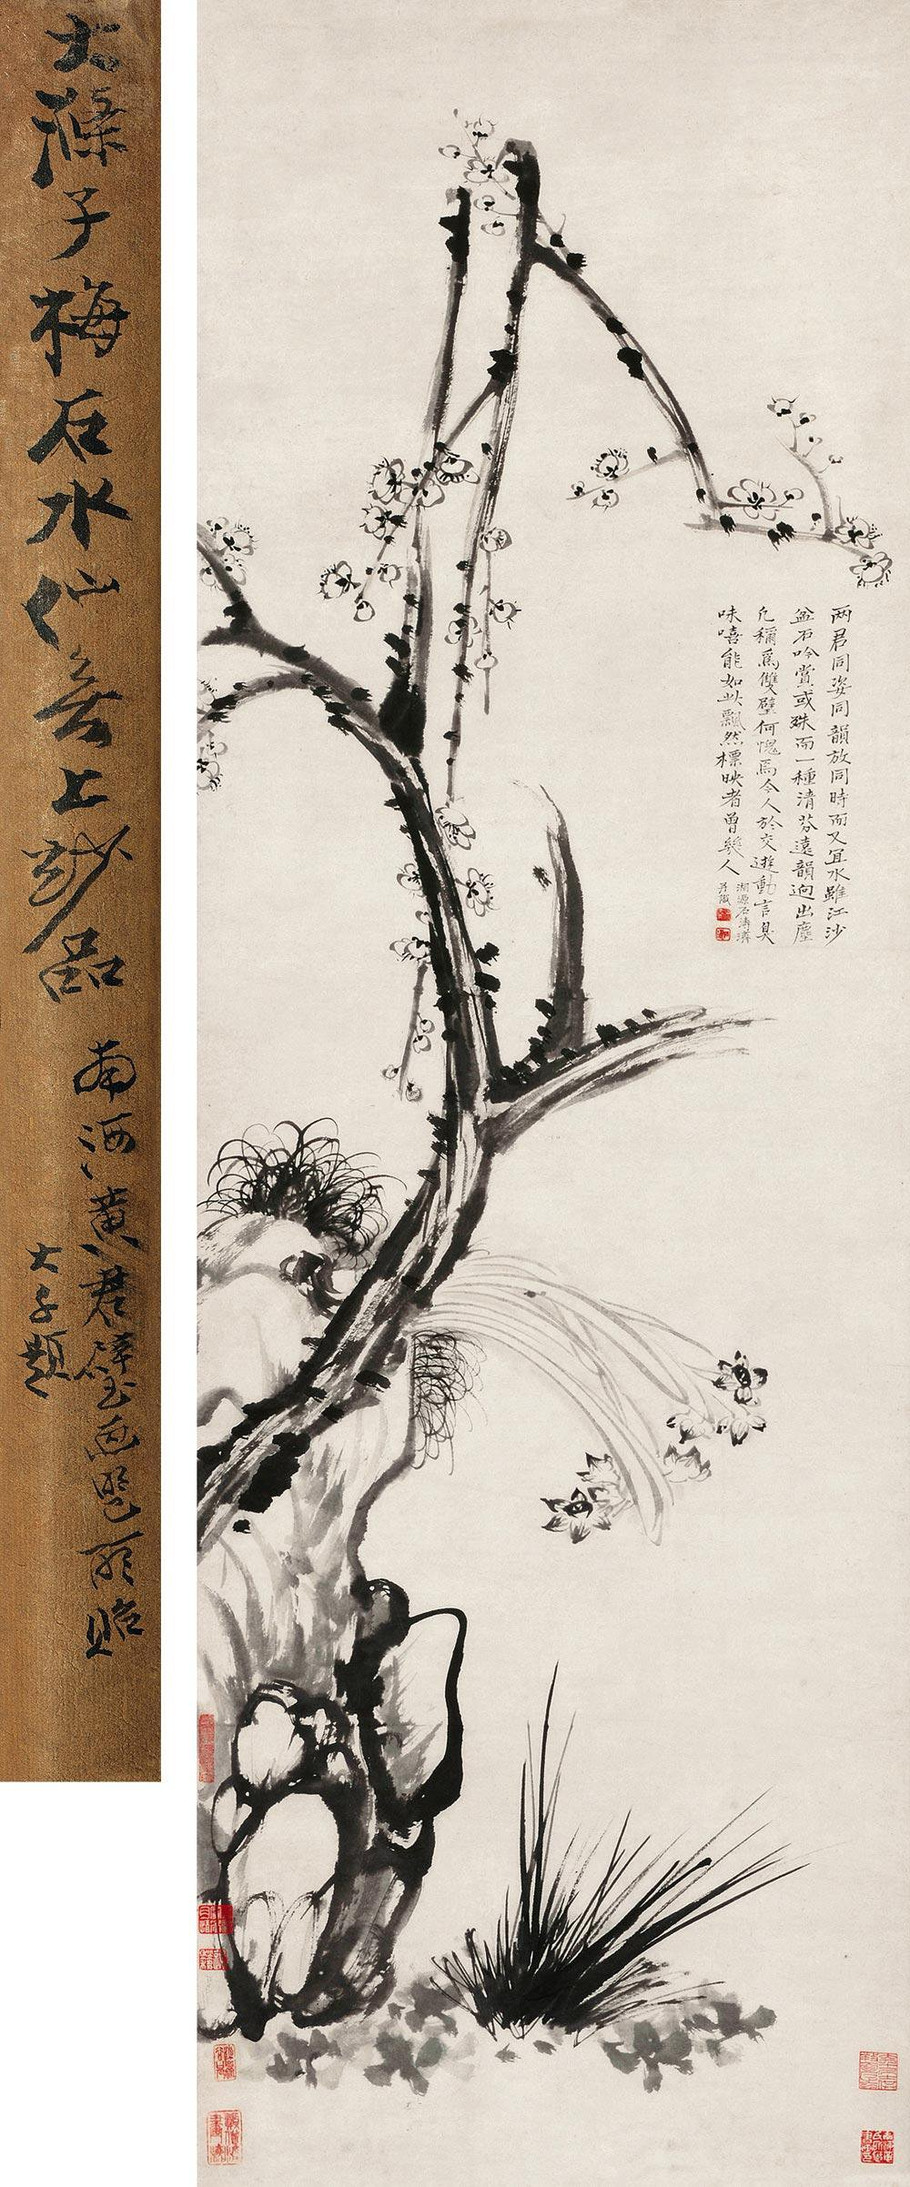 大滌子梅石水仙無上妙品
南海黃君璧画兄所貽
大千題
两君同姿同韻放同時而又宜水雖江沙
盆石吟賞或殊而一種清芬遠韻迥出塵
凡稱爲雙璧何愧焉今人於交遊動言臭
味嘻能如此飄然標映者曾幾人
湘源石濤濟
并識